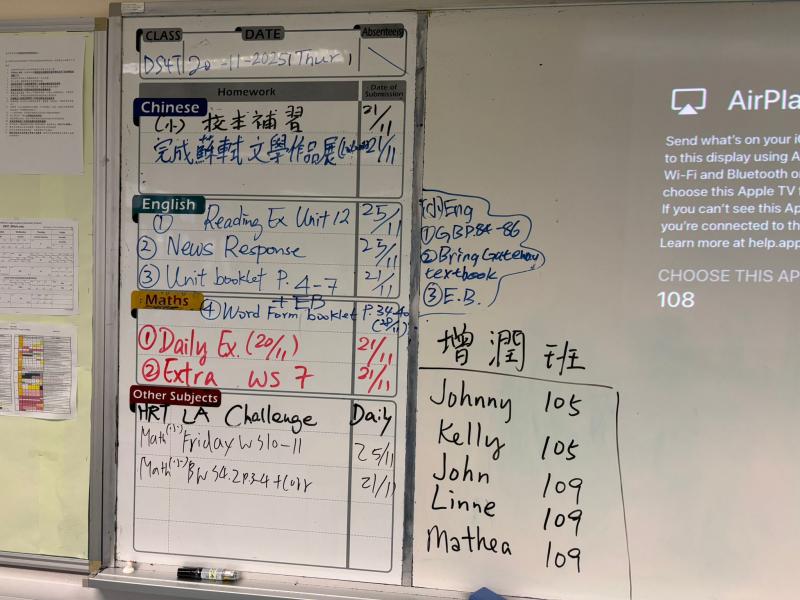 CLASS DATE Absentees
DS4T 20-11-2025 Thur
Homework Date of Submission
Chinese
(小) 校本補習 21/11
完成蘇軾文學作品展 21/11
English
① Reading Ex Unit 12 25/11
② News Response 25/11
③ Unit booklet P. 4-7 21/11
+ EB
④ Word Form booklet P. 34-40
(28/11)
Maths
① Daily Ex. (20/11) 21/11
② Extra WS 7 21/11
Other Subjects
HRT LA Challenge Daily
Math (小) Friday WS10-11 25/11
Math (小) BWS4.2 P.3-4 + Corr 21/11
(小) Eng
① GB P.84-86
② Bring Gateway
textbook
③ E.B.
增潤班
Johnny 105
Kelly 105
John 109
Linne 109
Mathea 109
AirPla
Send what's on your i
to this display using A
Wi-Fi and Bluetooth o
choose this Apple TV
If you can't see this Ap
you're connected to th
Learn more at help.app
CHOOSE THIS AP
108